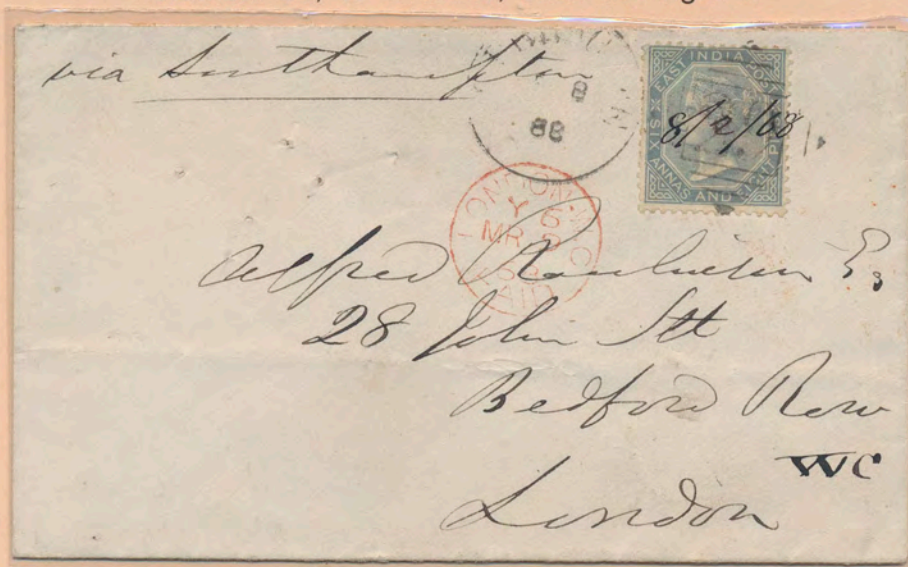 via Southampton
8
88
EAST INDIA POSTAGE
SIX ANNAS AND EIGHT PIES
8/2/68
LONDON W.C
Y 6
MR 9
68
PAID
Alfred Esq
28 John Stt
Bedford Row
WC
London